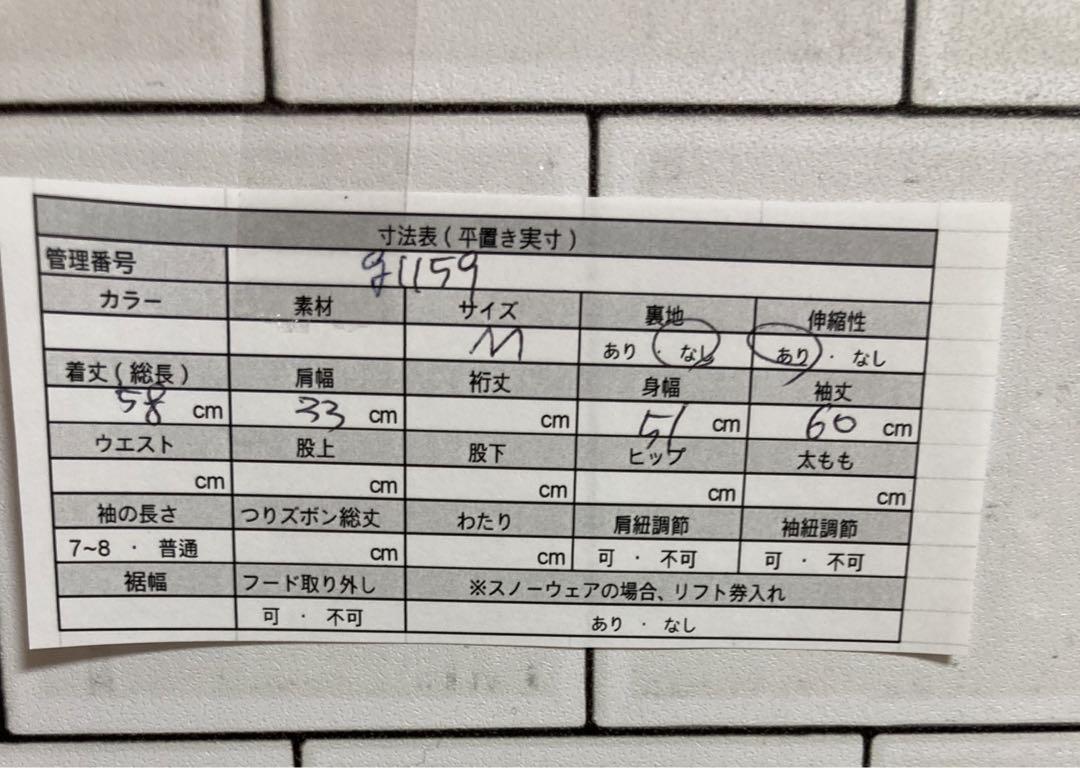 寸法表(平置き実寸)
管理番号 g1159
カラー 素材 サイズ 裏地 伸縮性
M あり・なし あり・なし
着丈(総長) 肩幅 裄丈 身幅 袖丈
58 cm 33 cm cm 51 cm 60 cm
ウエスト 股上 股下 ヒップ 太もも
cm cm cm cm cm
袖の長さ つりズボン総丈 わたり 肩紐調節 袖紐調節
7~8 ・ 普通 cm cm 可 ・ 不可 可 ・ 不可
裾幅 フード取り外し ※スノーウェアの場合、リフト券入れ
可 ・ 不可 あり ・ なし